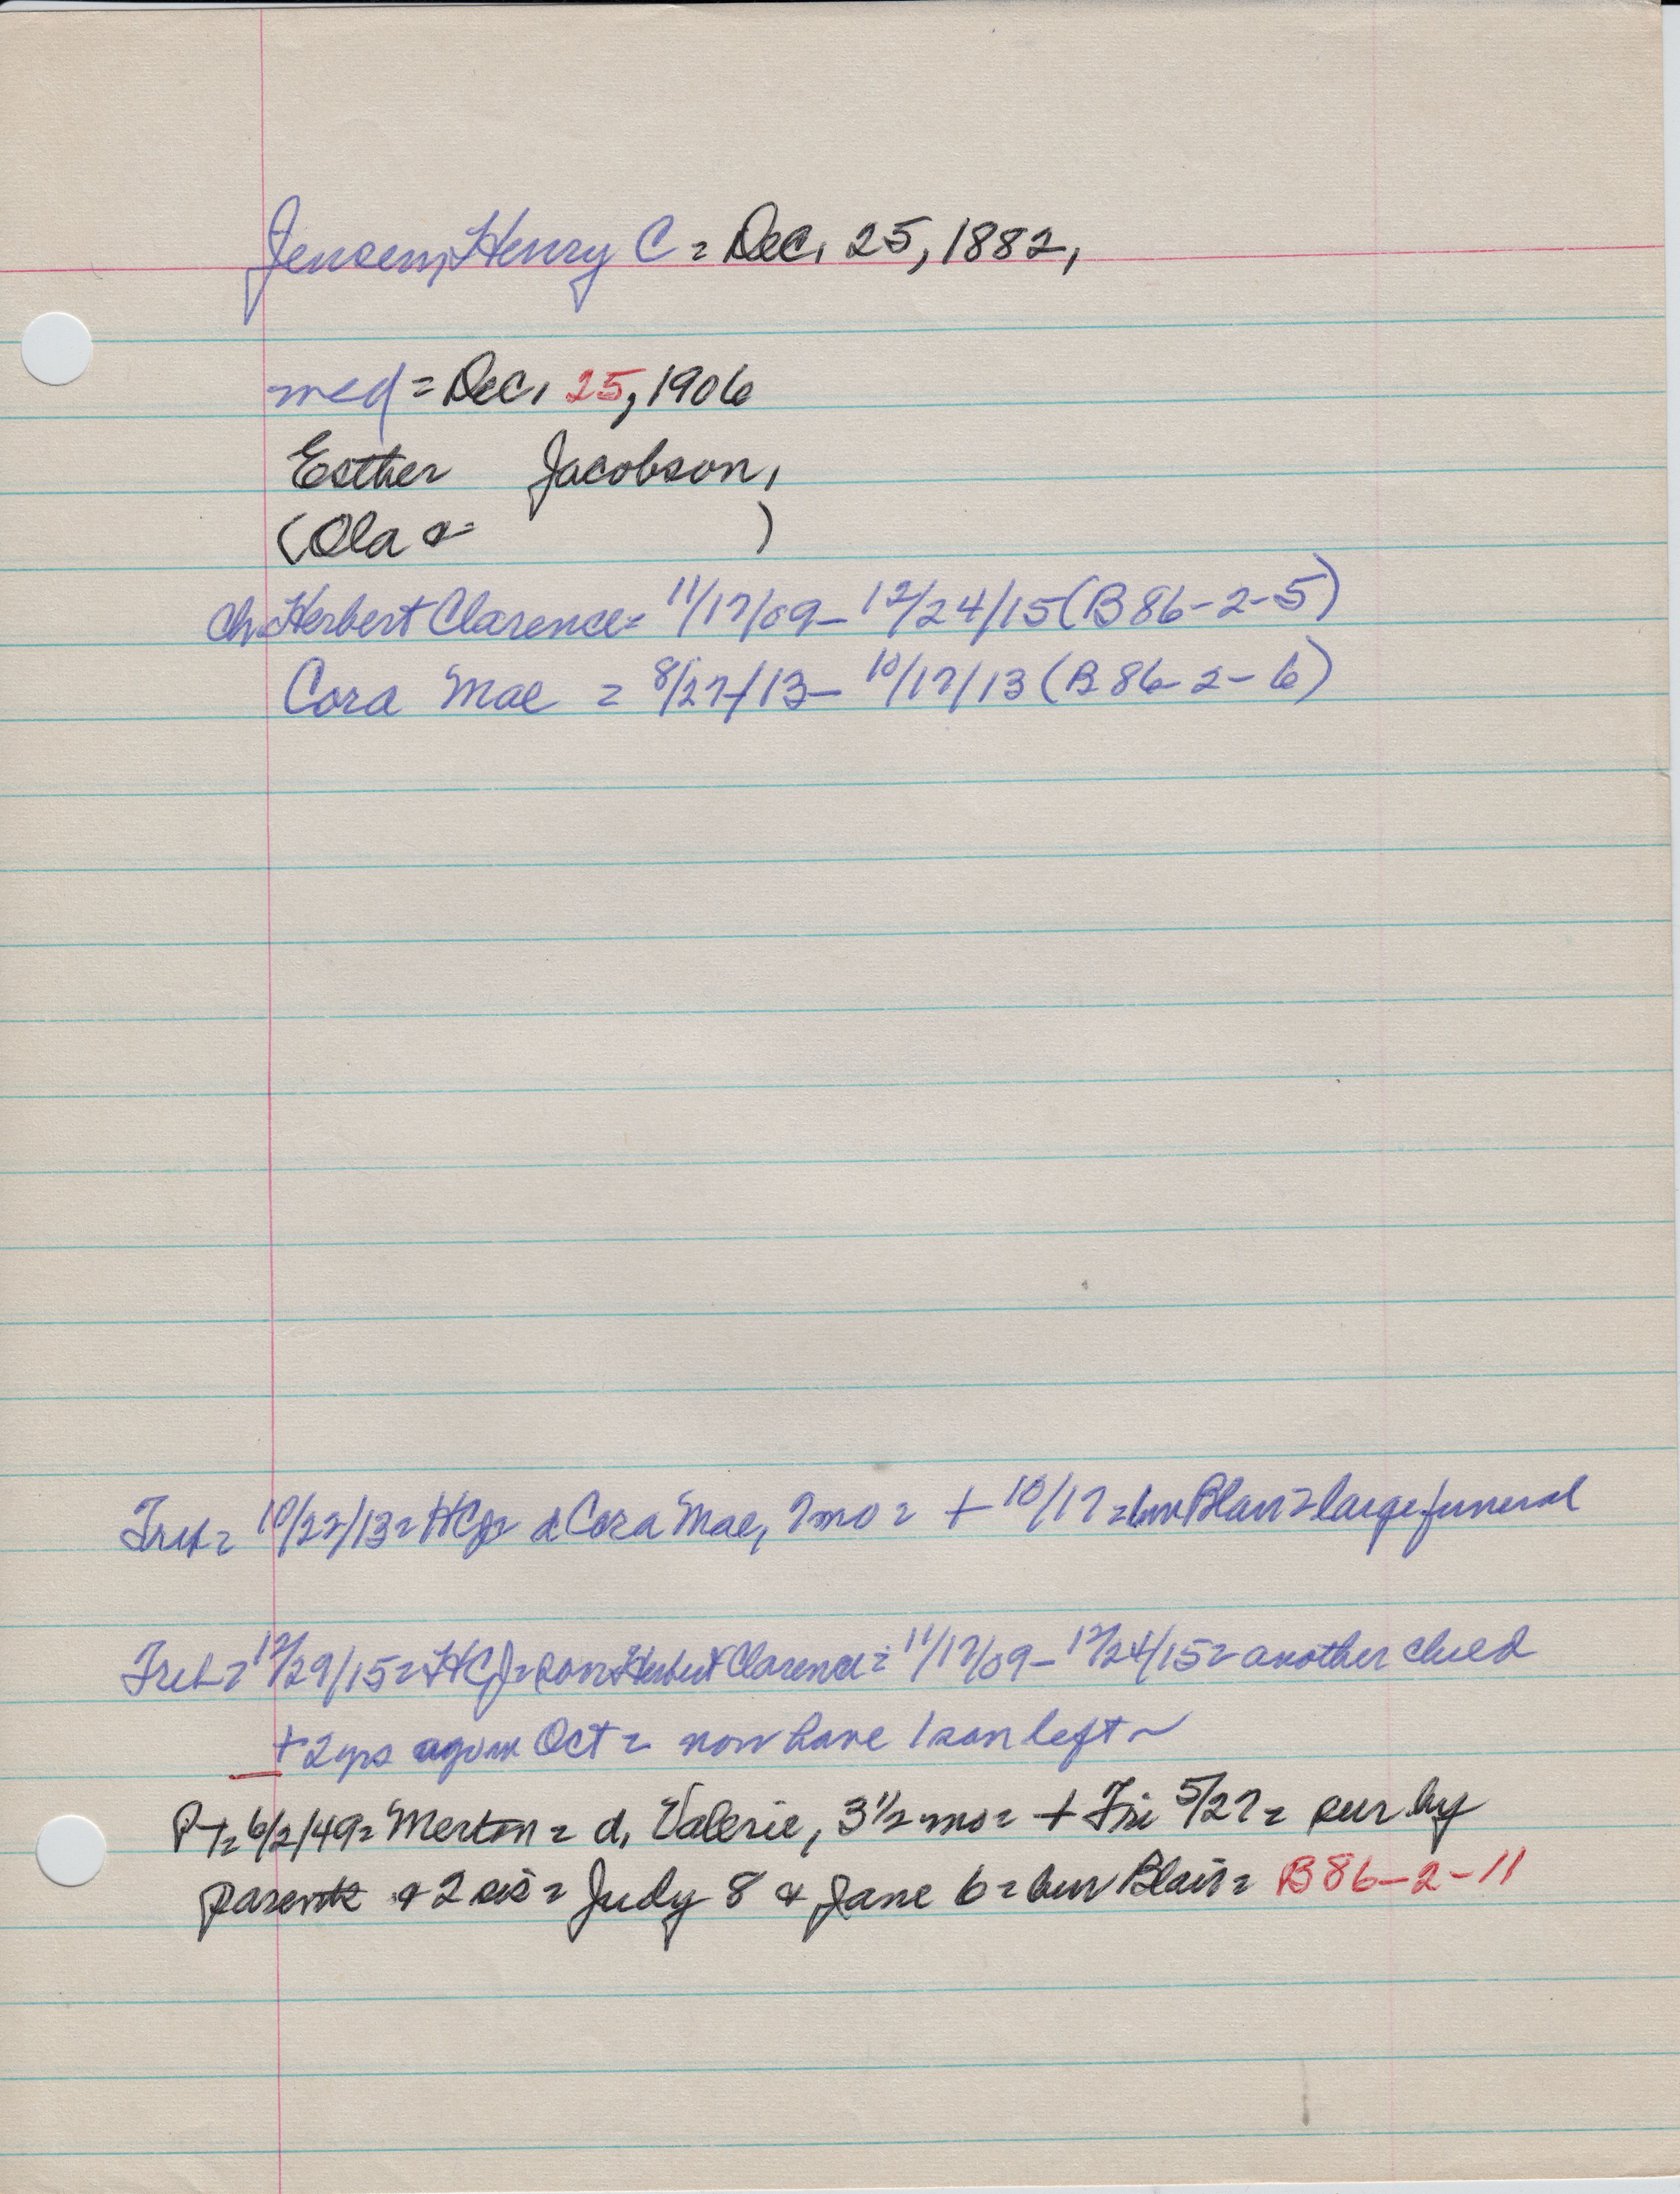 Jensen, Henry C = Dec. 25, 1882,
med = Dec. 25, 1906
Esther Jacobson,
(Ola & )
ch. Herbert Clarence = 11/17/09 - 12/24/15 (B 86-2-5)
Cora Mae = 8/27/13 - 10/17/13 (B 86-2-6)
= 10/22/13 = HCJ = d Cora Mae, mo = + 10/17 = bur Blair = large funeral
= 12/29/15 = HCJ = son Herbert Clarence = 11/17/09 - 12/24/15 = another child
+ 2 yrs ago in Oct = now have 1 son left ~
PT = 6/2/49 = Merton = d. Valerie, 3 1/2 mo = + Fri 5/27 = sur by
parents & 2 sis = Judy 8 & Jane 6 = bur Blair = B 86-2-11